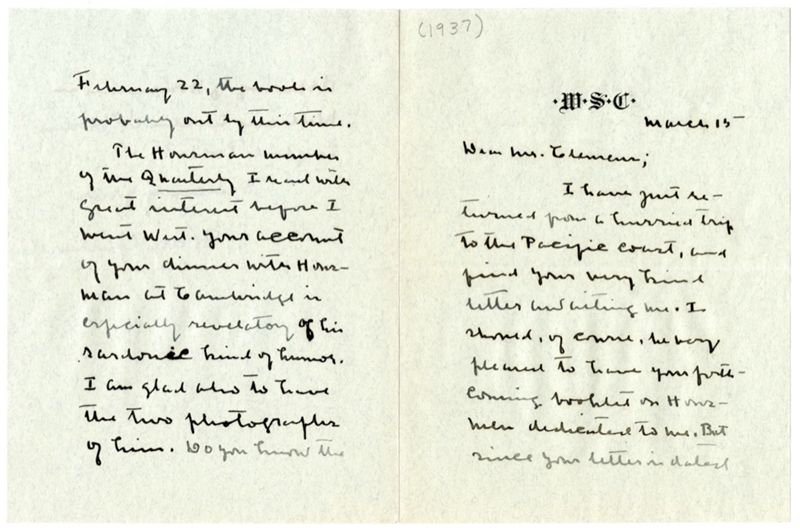 (1937)
·W·S·C·
March 15
Dear Mr. Clemens;
I have just re-
turned from a hurried trip
to the Pacific coast, and
find your very kind
letter awaiting me. I
should, of course, be very
pleased to have your forth-
coming booklet on Hous-
man dedicated to me. But
since your letter is dated
February 22, the book is
probably out by this time.
The Housman number
of the Quarterly I read with
great interest before I
went West. Your account
of your dinner with Hous-
man at Cambridge is
especially revelatory of his
sardonic kind of humor.
I am glad also to have
the two photographs
of him. Do you know the